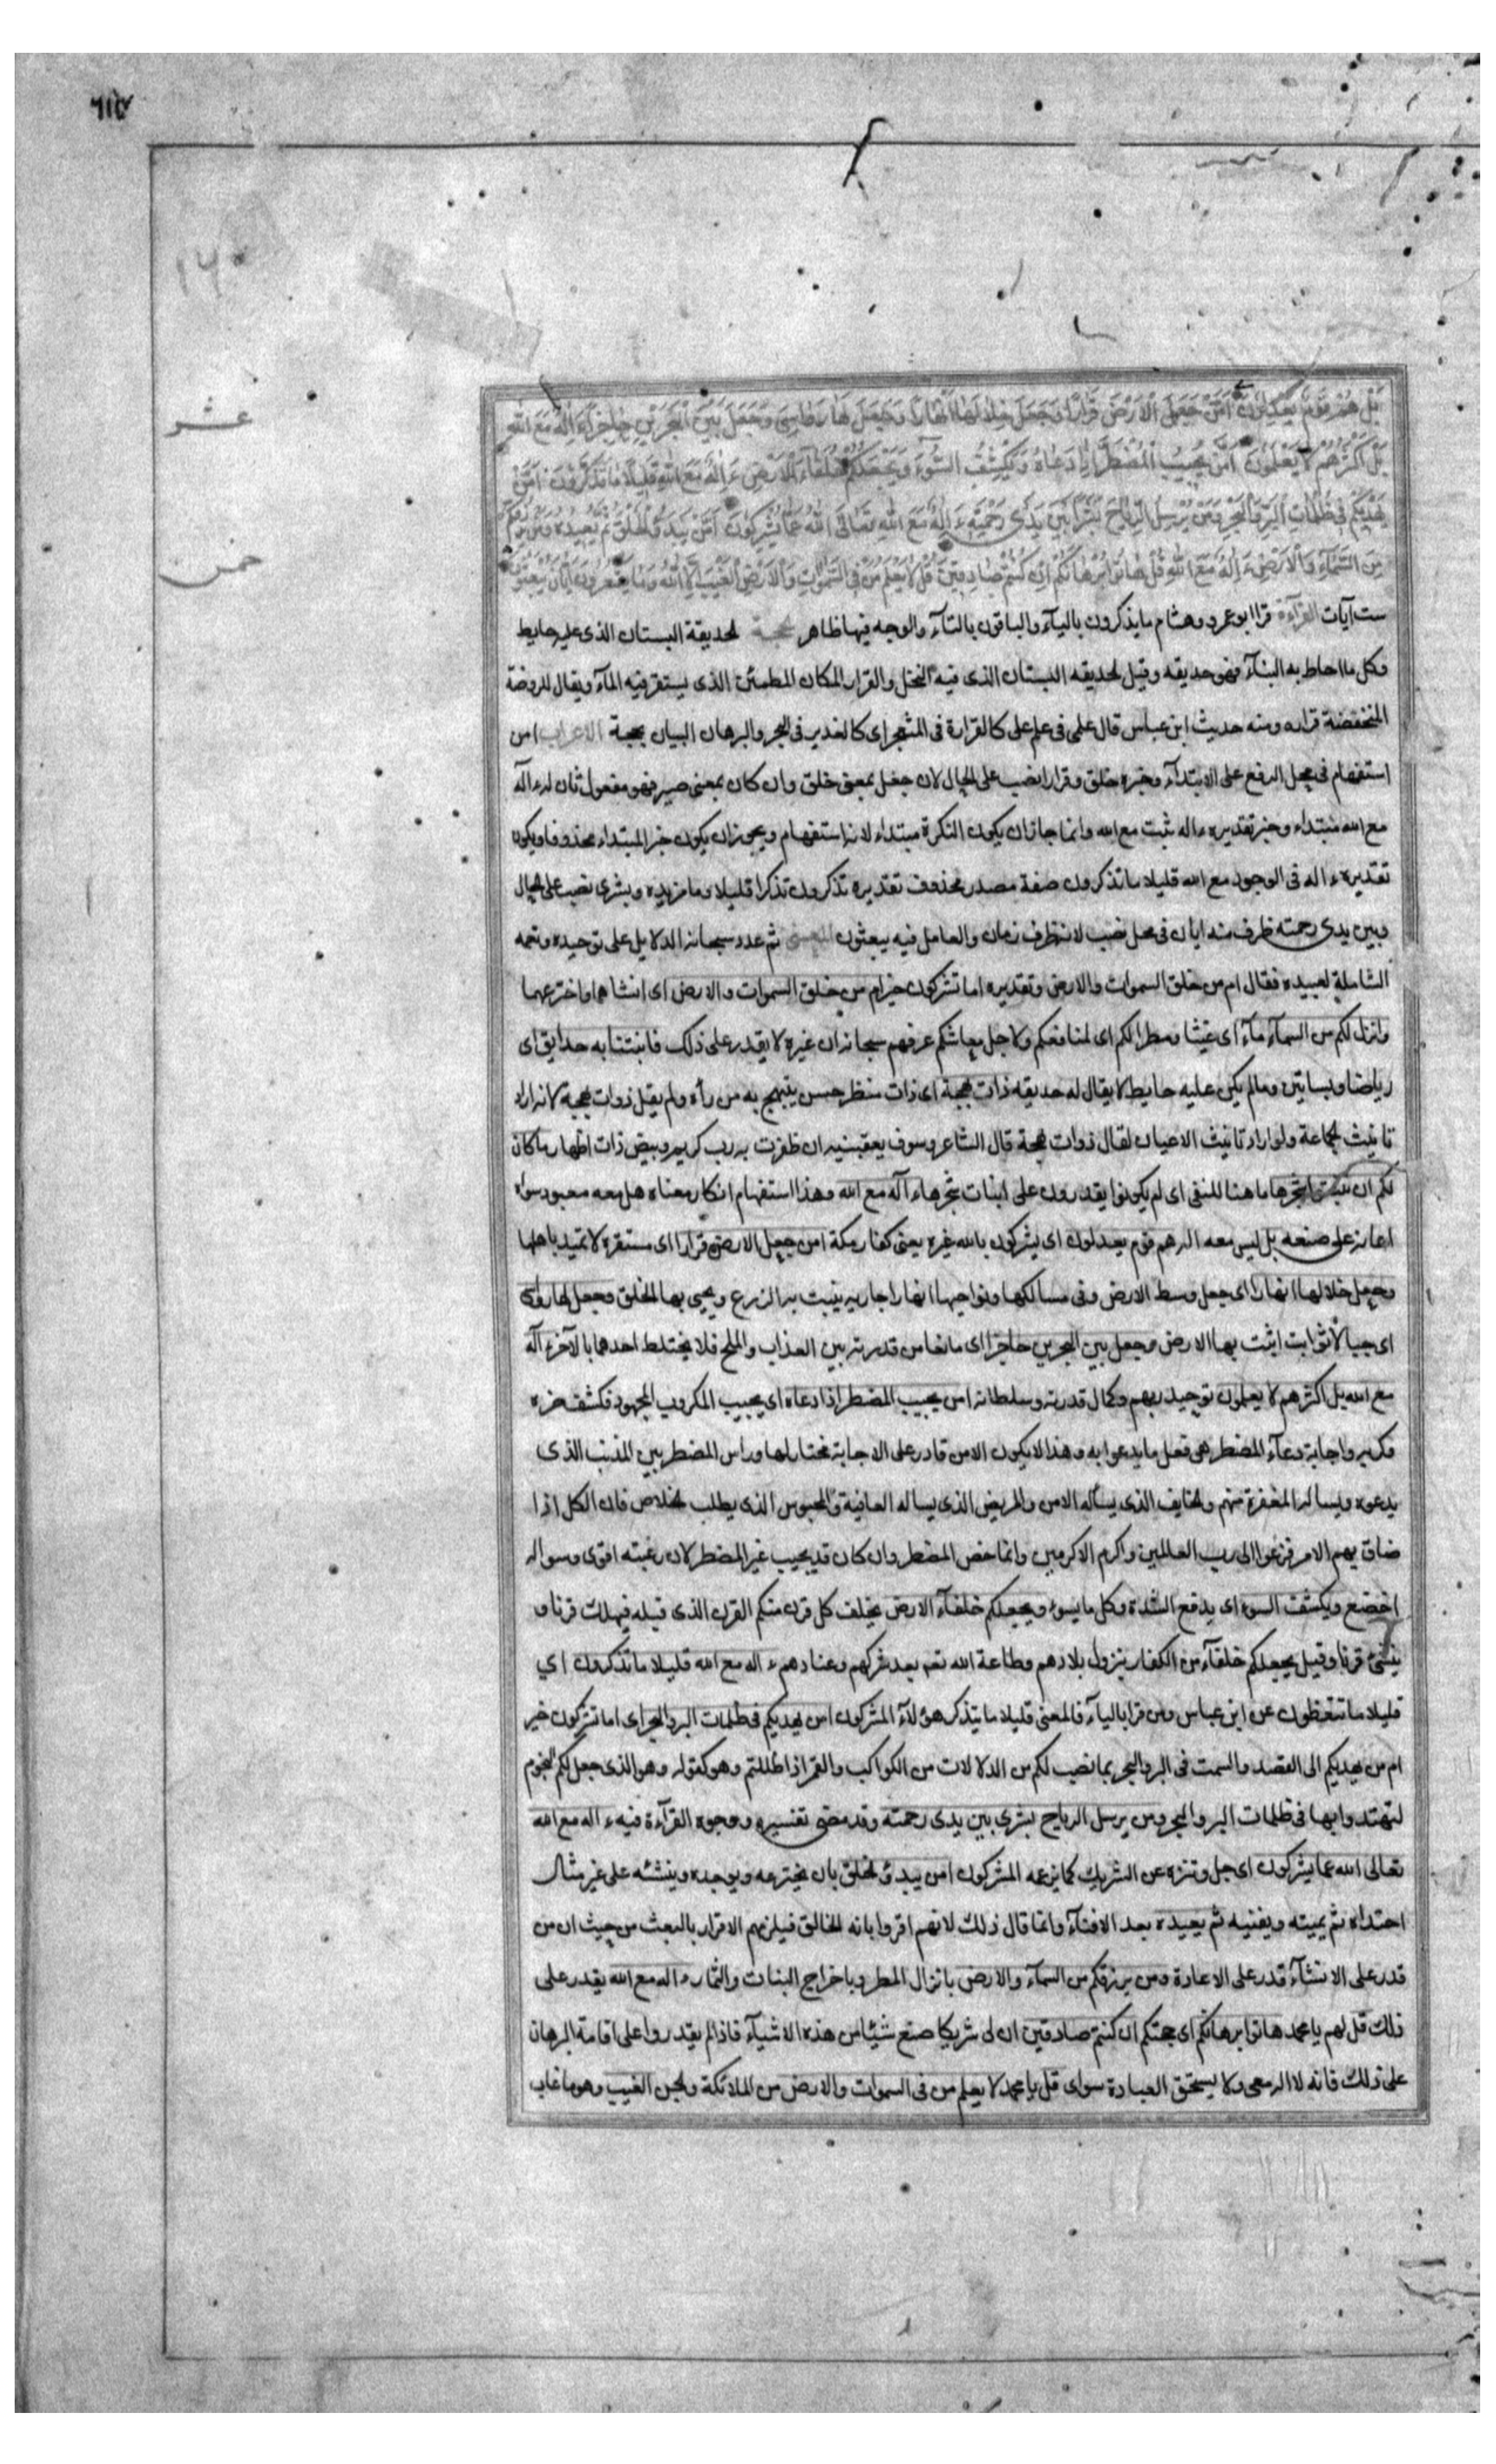 ٦١٥
١٤٠
عشر
خمس
بَلْ هُمْ قَوْمٌ يَعْدِلُونَ أَمَّنْ جَعَلَ الْأَرْضَ قَرَارًا وَجَعَلَ خِلَالَهَا أَنْهَارًا وَجَعَلَ لَهَا رَوَاسِيَ وَجَعَلَ بَيْنَ الْبَحْرَيْنِ حَاجِزًا ءَإِلَهٌ مَعَ اللهِ
بَلْ أَكْثَرُهُمْ لَا يَعْلَمُونَ أَمَّنْ يُجِيبُ الْمُضْطَرَّ إِذَا دَعَاهُ وَيَكْشِفُ السُّوءَ وَيَجْعَلُكُمْ خُلَفَاءَ الْأَرْضِ ءَإِلَهٌ مَعَ اللهِ قَلِيلًا مَا تَذَكَّرُونَ أَمَّنْ
يَهْدِيكُمْ فِي ظُلُمَاتِ الْبَرِّ وَالْبَحْرِ وَمَنْ يُرْسِلُ الرِّيَاحَ بُشْرًا بَيْنَ يَدَيْ رَحْمَتِهِ ءَإِلَهٌ مَعَ اللهِ تَعَالَى اللهُ عَمَّا يُشْرِكُونَ أَمَّنْ يَبْدَؤُ الْخَلْقَ ثُمَّ يُعِيدُهُ وَمَنْ يَرْزُقُكُمْ
مِنَ السَّمَاءِ وَالْأَرْضِ ءَإِلَهٌ مَعَ اللهِ قُلْ هَاتُوا بُرْهَانَكُمْ إِنْ كُنْتُمْ صَادِقِينَ قُلْ لَا يَعْلَمُ مَنْ فِي السَّمَوَاتِ وَالْأَرْضِ الْغَيْبَ إِلَّا اللهُ وَمَا يَشْعُرُونَ أَيَّانَ يُبْعَثُونَ
ست آيات القراءة قرا ابو عمرو وهشام ما يذكرون باليآء والباقون بالتآء والوجه فيها ظاهر الحديقة البستان الذى عليه حايط
وكل ما احاط به البنآء فهو حديقه وقيل الحديقه البستان الذى فيه النخل والقرار المكان المطمئن الذى يستقر فيه المآء ويقال للروضة
المنخفضة قراره ومنه حديث ابن عباس قال علمى فى علم على كالقرارة فى المثعنجر اى كالغدير فى البحر والبرهان البيان بحجة الاعراب امن
استفهام فى محل الرفع على الابتدآء وخبره خلق وقرارا نصب على الحال لان جعل بمعنى خلق وان كان بمعنى صير فهو مفعول ثان له ءاله
مع الله مبتداء وخبر تقديره ءاله ثبت مع الله وانما جاز ان يكون النكرة مبتداء لانه استفهام ويجوز ان يكون خبر المبتداء محذوفا ويكون
تقديره ءاله فى الوجود مع الله قليلا ما تذكرون صفة مصدر محذوف تقديره تذكرون تذكرا قليلا وما مزيده وبشرى نصب على الحال
وبين يدى رحمته ظرف منه ايان فى محل نصب لانه ظرف زمان والعامل فيه يبعثون المعنى ثم عدد سبحانه الدلايل على توحيده ونعمه
الشاملة لعبيده فقال ام من خلق السموات والارض وتقديره اما تشركون خير ام من خلق السموات والارض اى انشاهما واخترعهما
وانزل لكم من السمآء مآء اى غيثا ومطرا لكم اى لمنافعكم ولاجل معاشكم عرفهم سبحانه ان غيره لا يقدر على ذلك فانبتنا به حدايق اى
رياضا وبساتين وما لم يكن عليه حايط لا يقال له حديقه ذات بهجة اى ذات منظر حسن يبتهج به من رأه ولم يقل ذوات بهجة لانه اراد
تانيث الجماعة ولو اراد تانيث الاعيان لقال ذوات بهجة قال الشاعر وسوف يعقبنيه ان ظفرت به رب كريم وبيض ذات اطهار ما كان
لكم ان تنبتوا شجرها ما هنا للنفى اى لم يكونوا يقدرون على انبات شجرها ءاله مع الله وهذا استفهام انكار معناه هل معه معبود سواه
اعانه على صنعه بل ليس معه اله هم قوم يعدلون اى يشركون بالله غيره يعنى كفار مكة امن جعل الارض قرارا اى مستقرة لا تميد باهلها
وجعل خلالها انهارا اى جعل وسط الارض وفى مسالكها ونواحيها انهارا جاريه ينبت به الزرع ويحيى بها الخلق وجعل لها رواسى
اى جبالا ثوابت اثبت بها الارض وجعل بين البحرين حاجزا اى مانعا من قدرته بين العذاب والملح فلا يختلط احدهما بالآخر ءاله
مع الله بل اكثرهم لا يعلمون توحيد ربهم وكمال قدرته وسلطانه امن يجيب المضطر اذا دعاه اى يجيب المكروب المجهود فكشف ضره
وكربه واجابة دعآء المضطر هى فعل ما يدعوا به وهذا لا يكون الا من قادر على الاجابة مختار لها وراس المضطرين المذنب الذى
يدعوه ويساله المغفرة منهم والخايف الذى يسأله الامن والمريض الذى يساله العافية والمحبوس الذى يطلب الخلاص فان الكل اذا
ضاق بهم الامر فزعوا الى رب العالمين واكرم الاكرمين وانما خص المضطر وان كان قد يجيب غير المضطر لان رغبته اقوى وسواله
اخضع ويكشف السوء اى يدفع الشدة وكل ما يسوء ويجعلكم خلفآء الارض يخلف كل قرن منكم القرن الذى قبله فيهلك قرنا و
ينشئ قرنا وقيل يجعلكم خلفآء من الكفار بنزول بلادهم وطاعة الله تعم بعد شركهم وعنادهم ءاله مع الله قليلا ما تذكرون اي
قليلا ما تتعظون عن ابن عباس ومن قرا باليآء فالمعنى قليلا ما يتذكر هؤلآء المشركون امن يهديكم فى ظلمات البر والبحر اى اما تشركون خير
ام من يهديكم الى القصد والسمت فى البر والبحر بما نصب لكم من الدلالات من الكواكب والقمر اذا ظللتم وهو كقوله وهو الذى جعل لكم النجوم
لتهتدوا بها فى ظلمات البر والبحر ومن يرسل الرياح بشرى بين يدى رحمته وقد مضى تفسيره ووجوه القرآءة فيه ءاله مع الله
تعالى الله عما يشركون اى جل وتنزه عن الشريك كما يزعمه المشركون امن يبدؤ الخلق بان يخترعه ويوجده وينشئه على غير مثال
احتداه ثم يميته ويفنيه ثم يعيده بعد الافنآء وانما قال ذلك لانهم اقروا بانه الخالق فيلزمهم الاقرار بالبعث من حيث ان من
قدر على الانشآء قدر على الاعادة ومن يرزقكم من السمآء والارض بانزال المطر وباخراج النبات والثمار ءاله مع الله يقدر على
ذلك قل لهم يا محمد هاتوا برهانكم اى حجتكم ان كنتم صادقين ان لى شريكا صنع شيئا من هذه الاشيآء فاذا لم يقدروا على اقامة البرهان
على ذلك فانه لا اله معى ولا يستحق العبادة سواى قل يا محمد لا يعلم من فى السموات والارض من الملائكة والجن الغيب وهو ما غاب